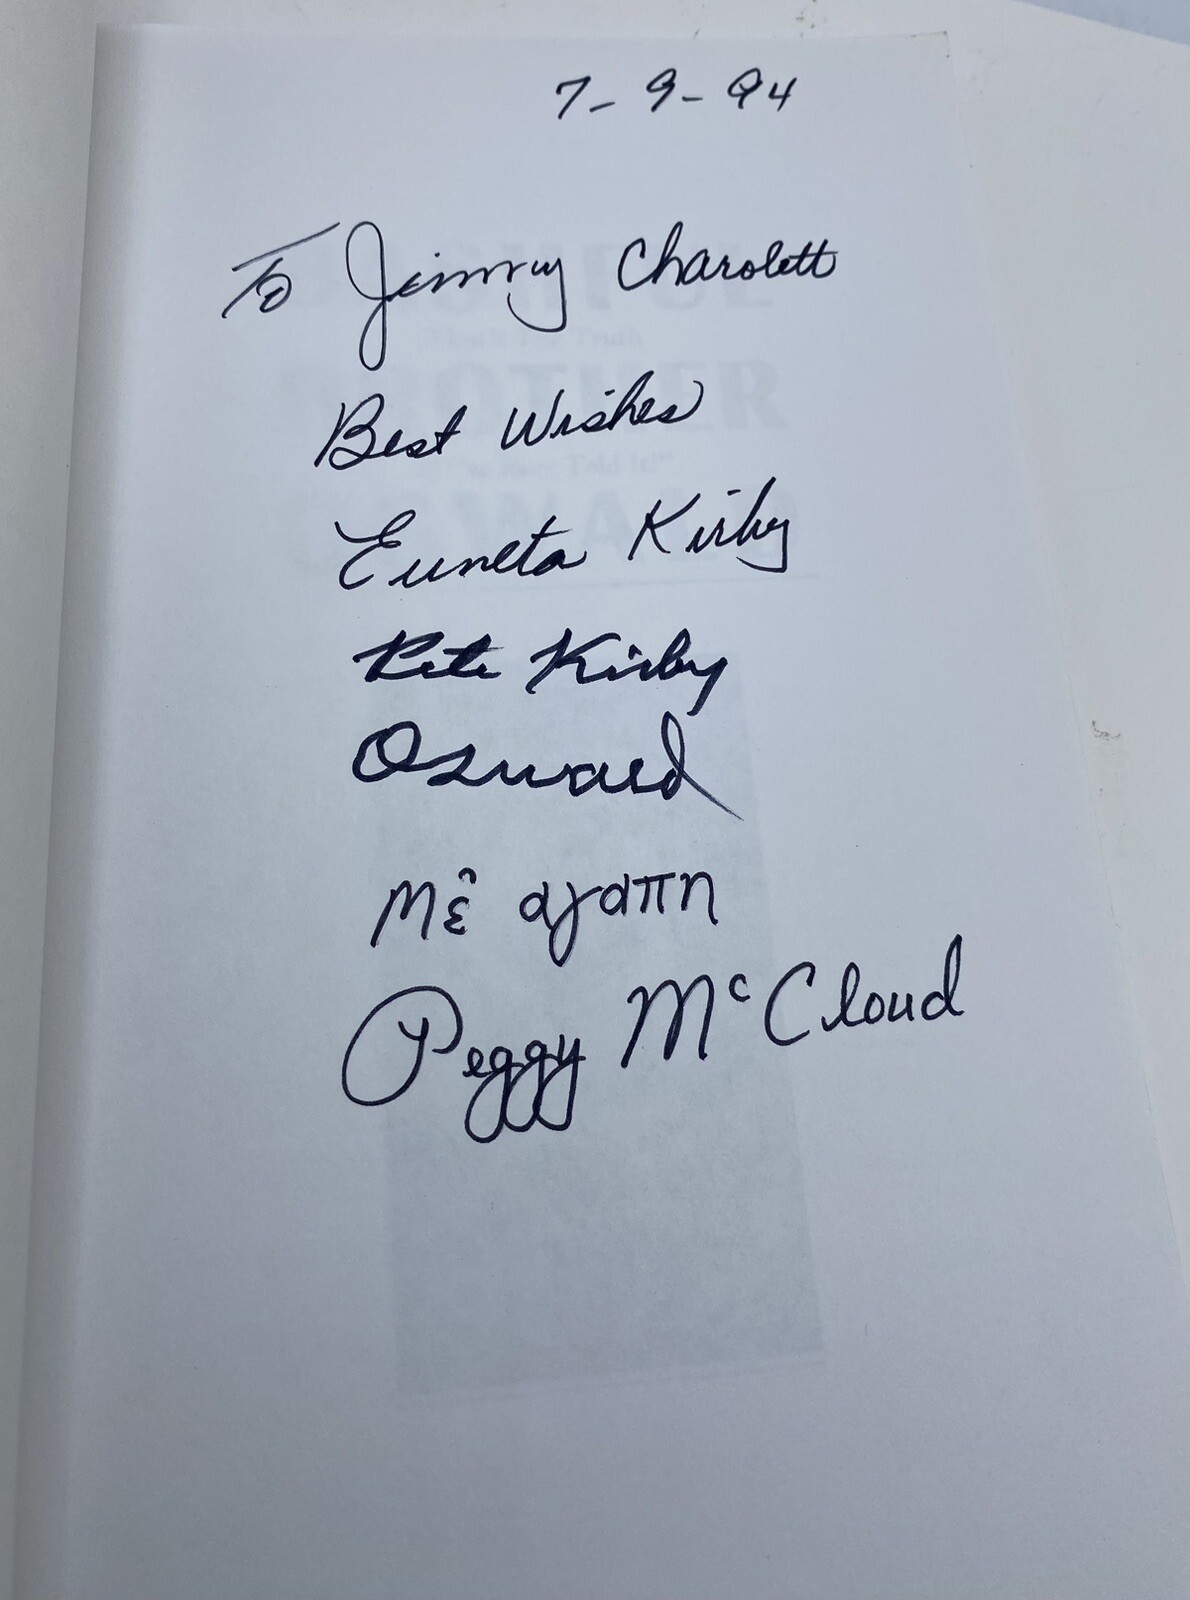 7-9-94
To Jimmy Charolett
Best Wishes
Euneta Kirby
Pete Kirby
Oswald
Mὲ αγαπη
Peggy McCloud